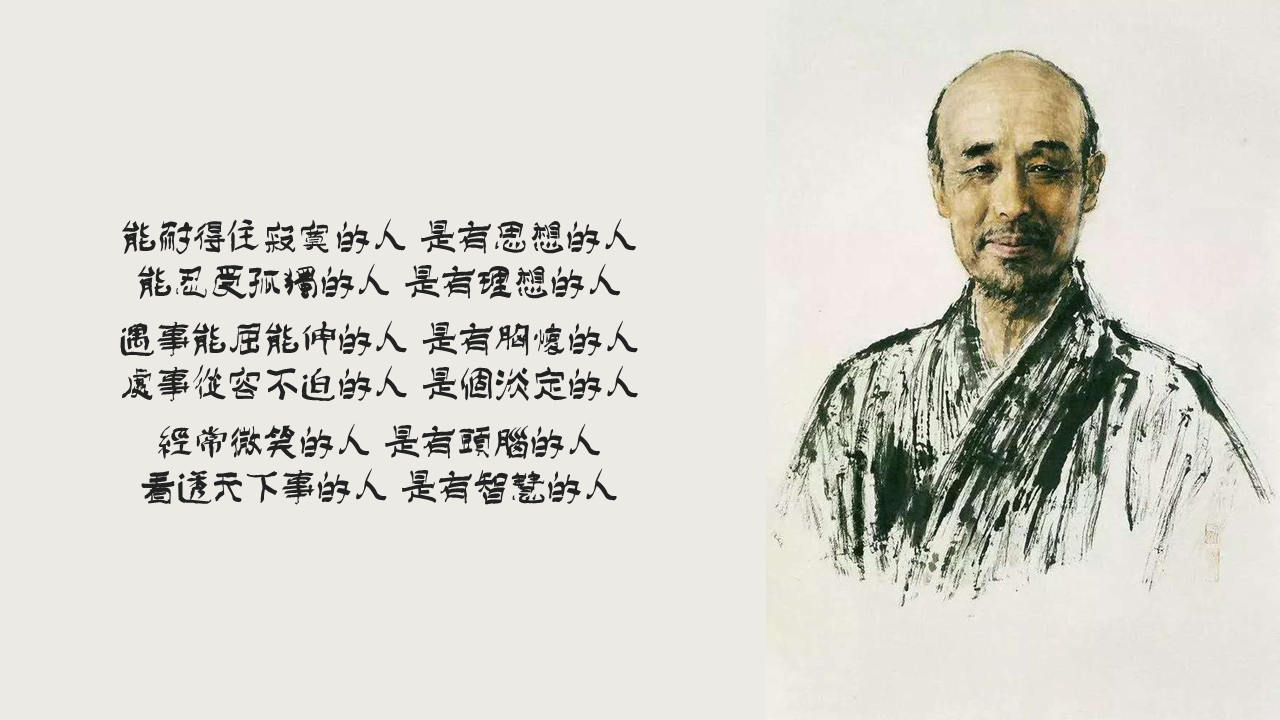 能耐得住寂寞的人 是有思想的人
能忍受孤獨的人 是有理想的人
遇事能屈能伸的人 是有胸懷的人
處事從容不迫的人 是個淡定的人
經常微笑的人 是有頭腦的人
看透天下事的人 是有智慧的人